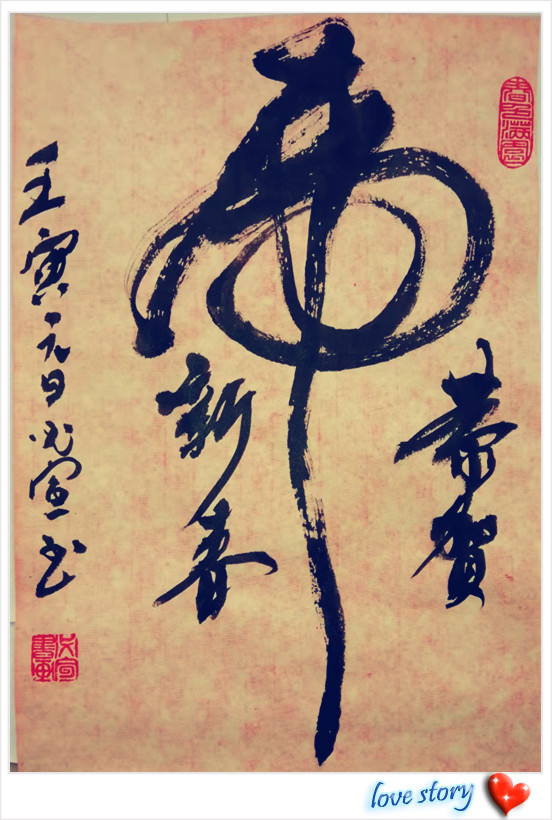 虎
恭贺
新春
壬寅元日
书
love story